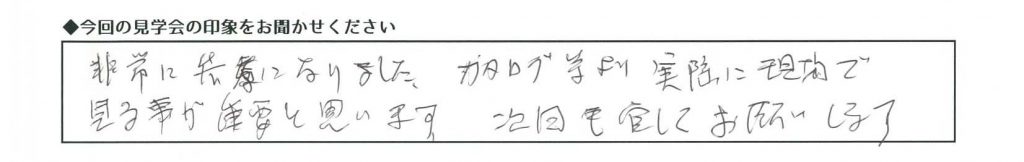 ◆今回の見学会の印象をお聞かせください
非常に参考になりました、カタログ等より実際に現物で
見る事が重要と思います 次回も宜しくお願いします